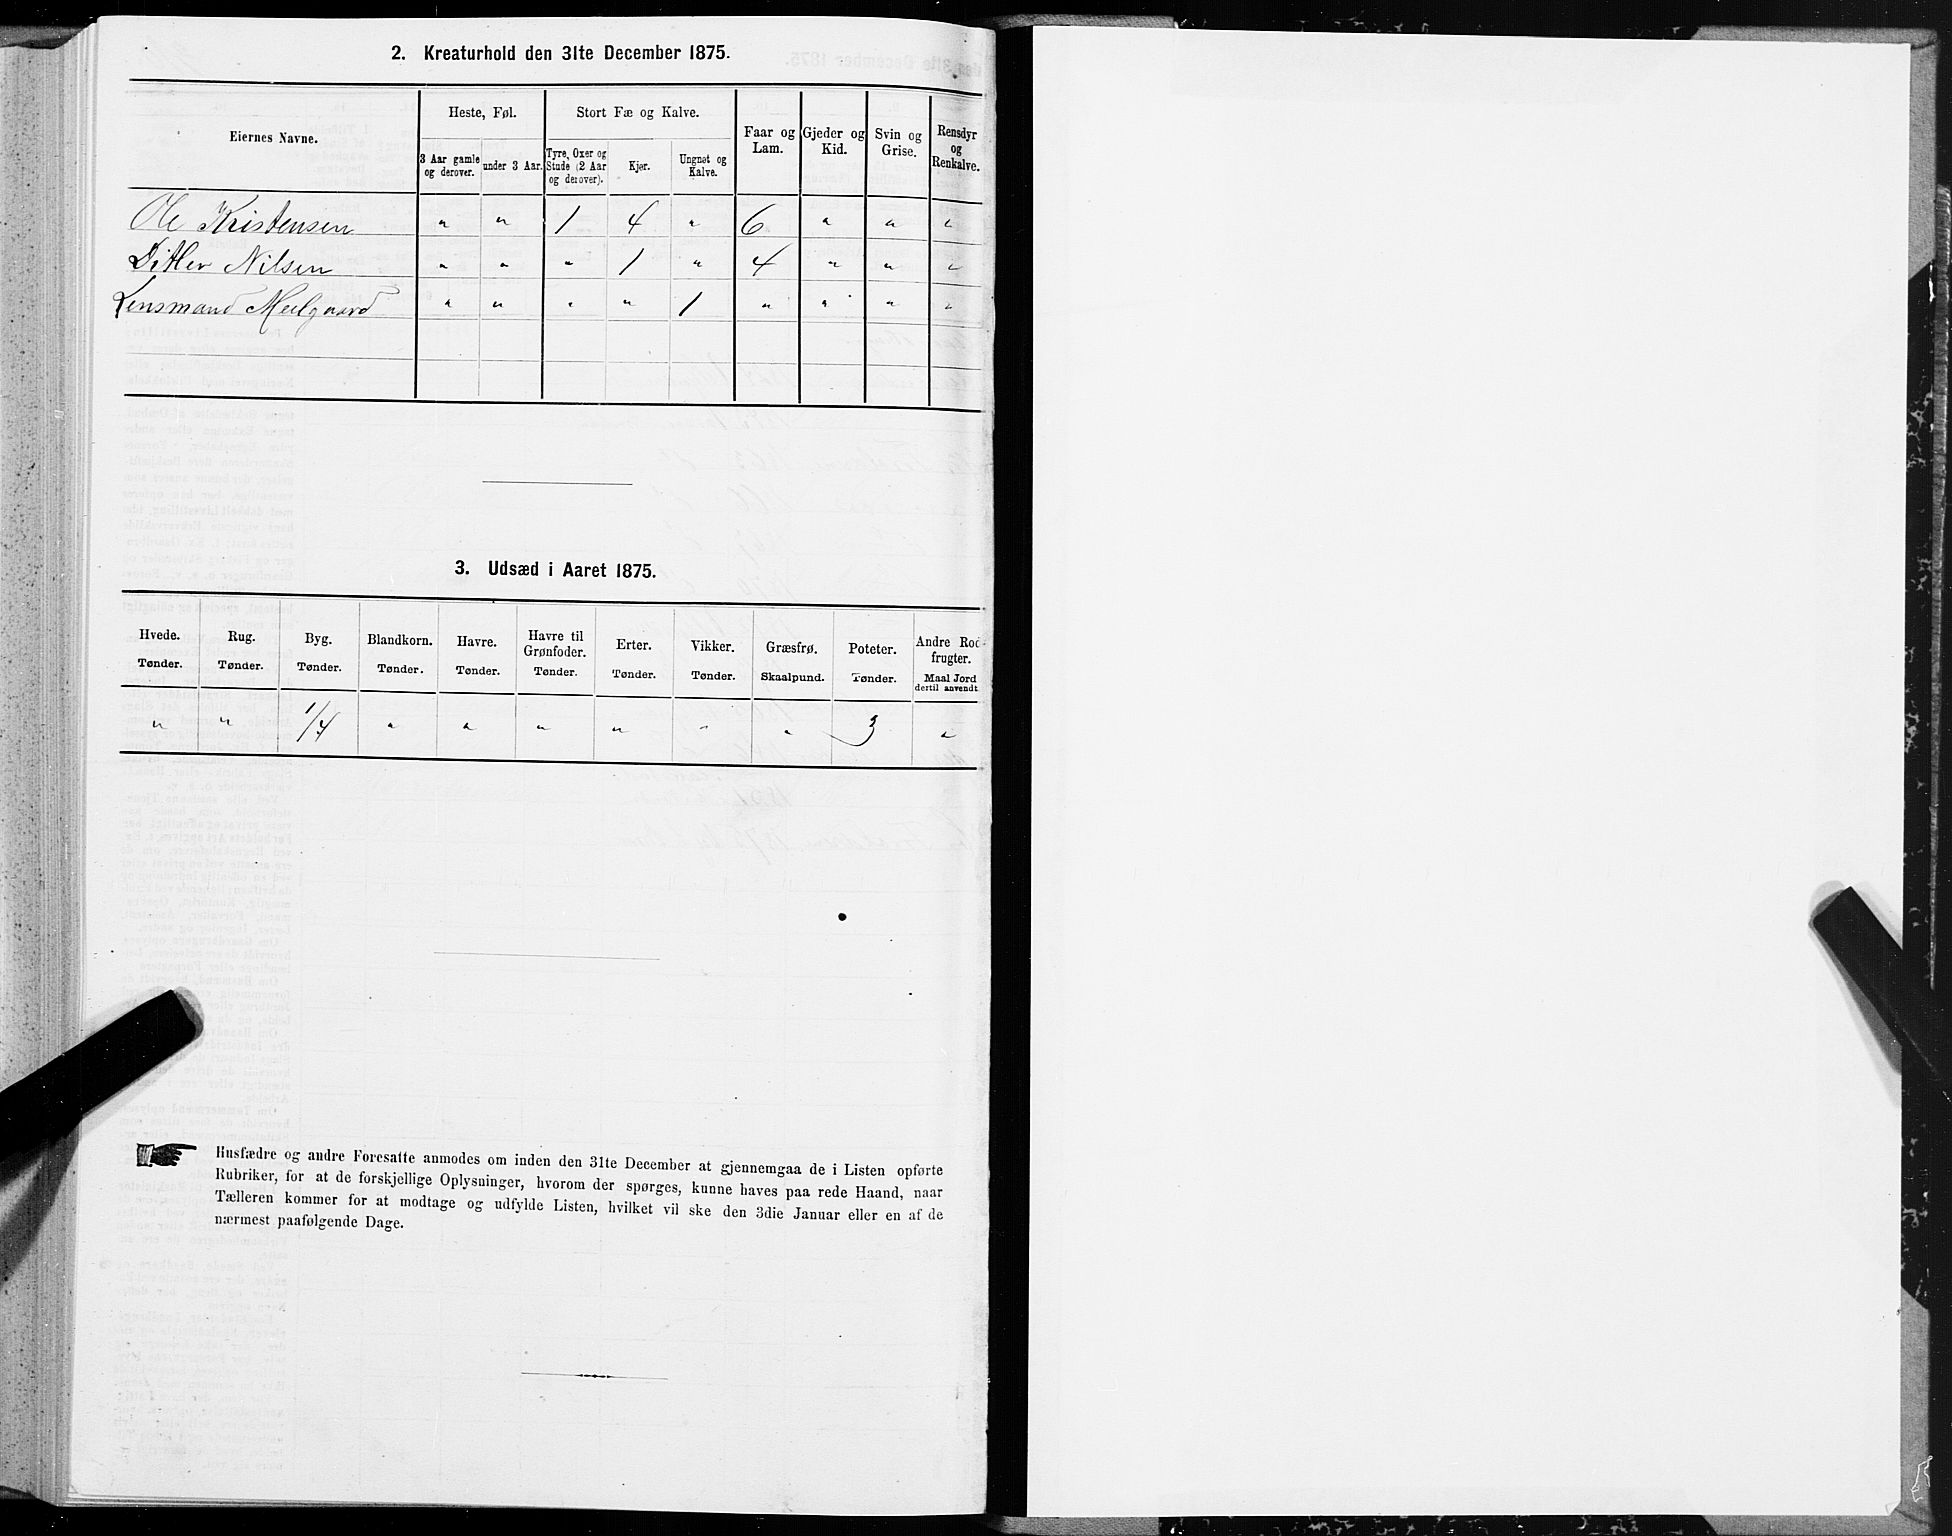 2. Kreaturhold den 31te December 1875.
Eiernes Navne.
Heste, Føl.
Stort Fæ og Kalve.
Faar og Lam.
Gjeder og Kid.
Svin og Grise.
Rensdyr og Renkalve.
3 Aar gamle og derover.
under 3 Aar.
Tyre, Oxer og Stude (2 Aar og derover).
Kjør.
Ungnøt og Kalve.
Ole Kristensen " " 1 4 " 6 " " "
Ditlev Nilsen " " " 1 " 4 " " "
Lensmand Meelgaard " " " " 1 " " " "
3. Udsæd i Aaret 1875.
Hvede. Rug. Byg. Blandkorn. Havre. Havre til Grønfoder. Erter. Vikker. Græsfrø. Poteter. Andre Rodfrugter.
Tønder. Tønder. Tønder. Tønder. Tønder. Tønder. Tønder. Tønder. Skaalpund. Tønder. Maal Jord dertil anvendt.
" " 1/4 " " " " " " 3 "
Husfædre og andre Foresatte anmodes om inden den 31te December at gjennemgaa de i Listen opførte
Rubriker, for at de forskjellige Oplysninger, hvorom der spørges, kunne haves paa rede Haand, naar
Tælleren kommer for at modtage og udfylde Listen, hvilket vil ske den 3die Januar eller en af de
nærmest paafølgende Dage.